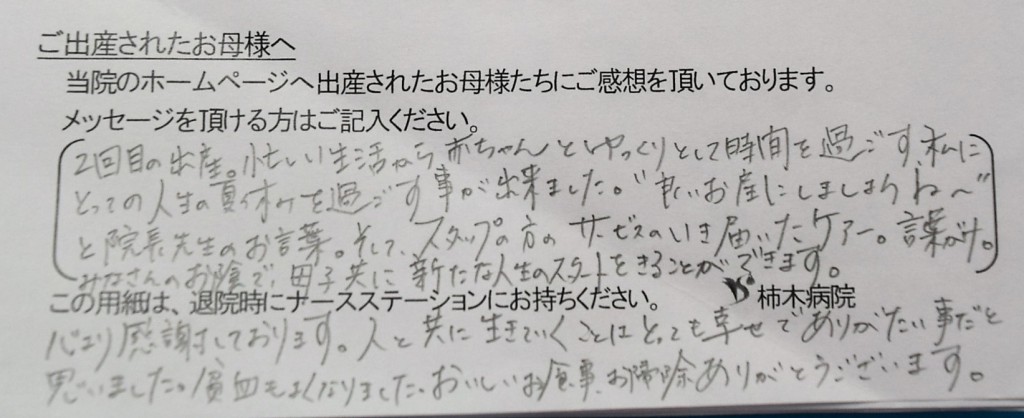 ご出産されたお母様へ
当院のホームページへ出産されたお母様たちにご感想を頂いております。
メッセージを頂ける方はご記入ください。
2回目の出産。忙しい生活から赤ちゃんとゆっくりとして時間を過ごす、私に
とっての人生の夏休みを過ごす事が出来ました。"良いお産にしましょうね〜"
と院長先生のお言葉。そして、スタップの方のサービスのいき届いたケアー。言葉がけ。
みなさんのお陰で、母子共に新たな人生のスタートをきることができます。
この用紙は、退院時にナースステーションにお持ちください。 柿木病院
心より感謝しております。人と共に生きていくことはとっても幸せでありがたい事だと
思いました。貧血もよくなりました。おいしいお食事、お掃除ありがとうございます。